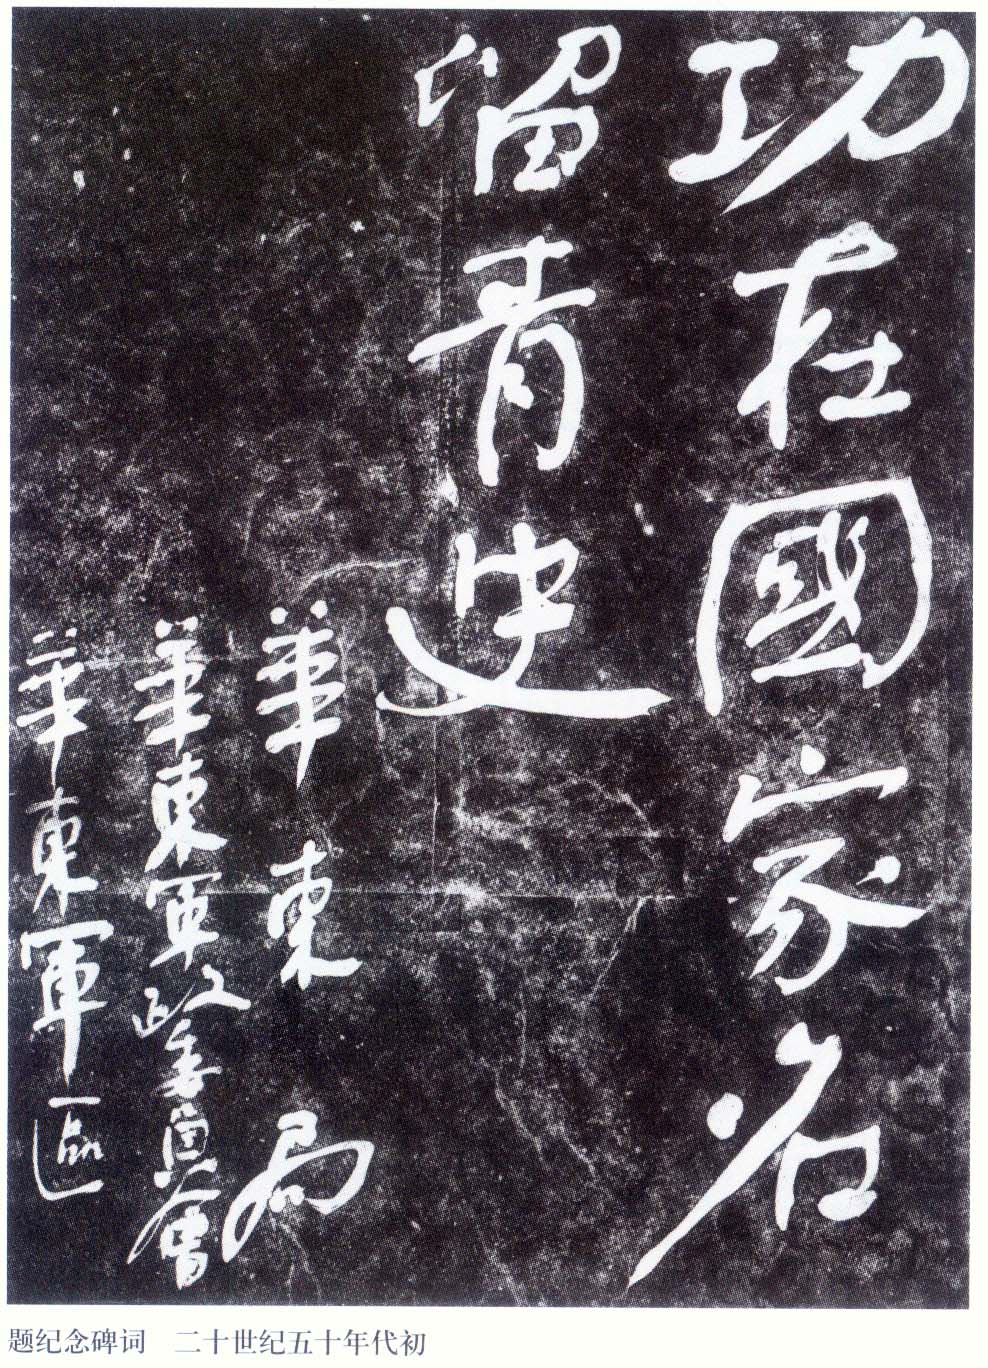 功在國家名
留青史
華東局
華東軍政委員會
華東軍區
题纪念碑词　二十世纪五十年代初